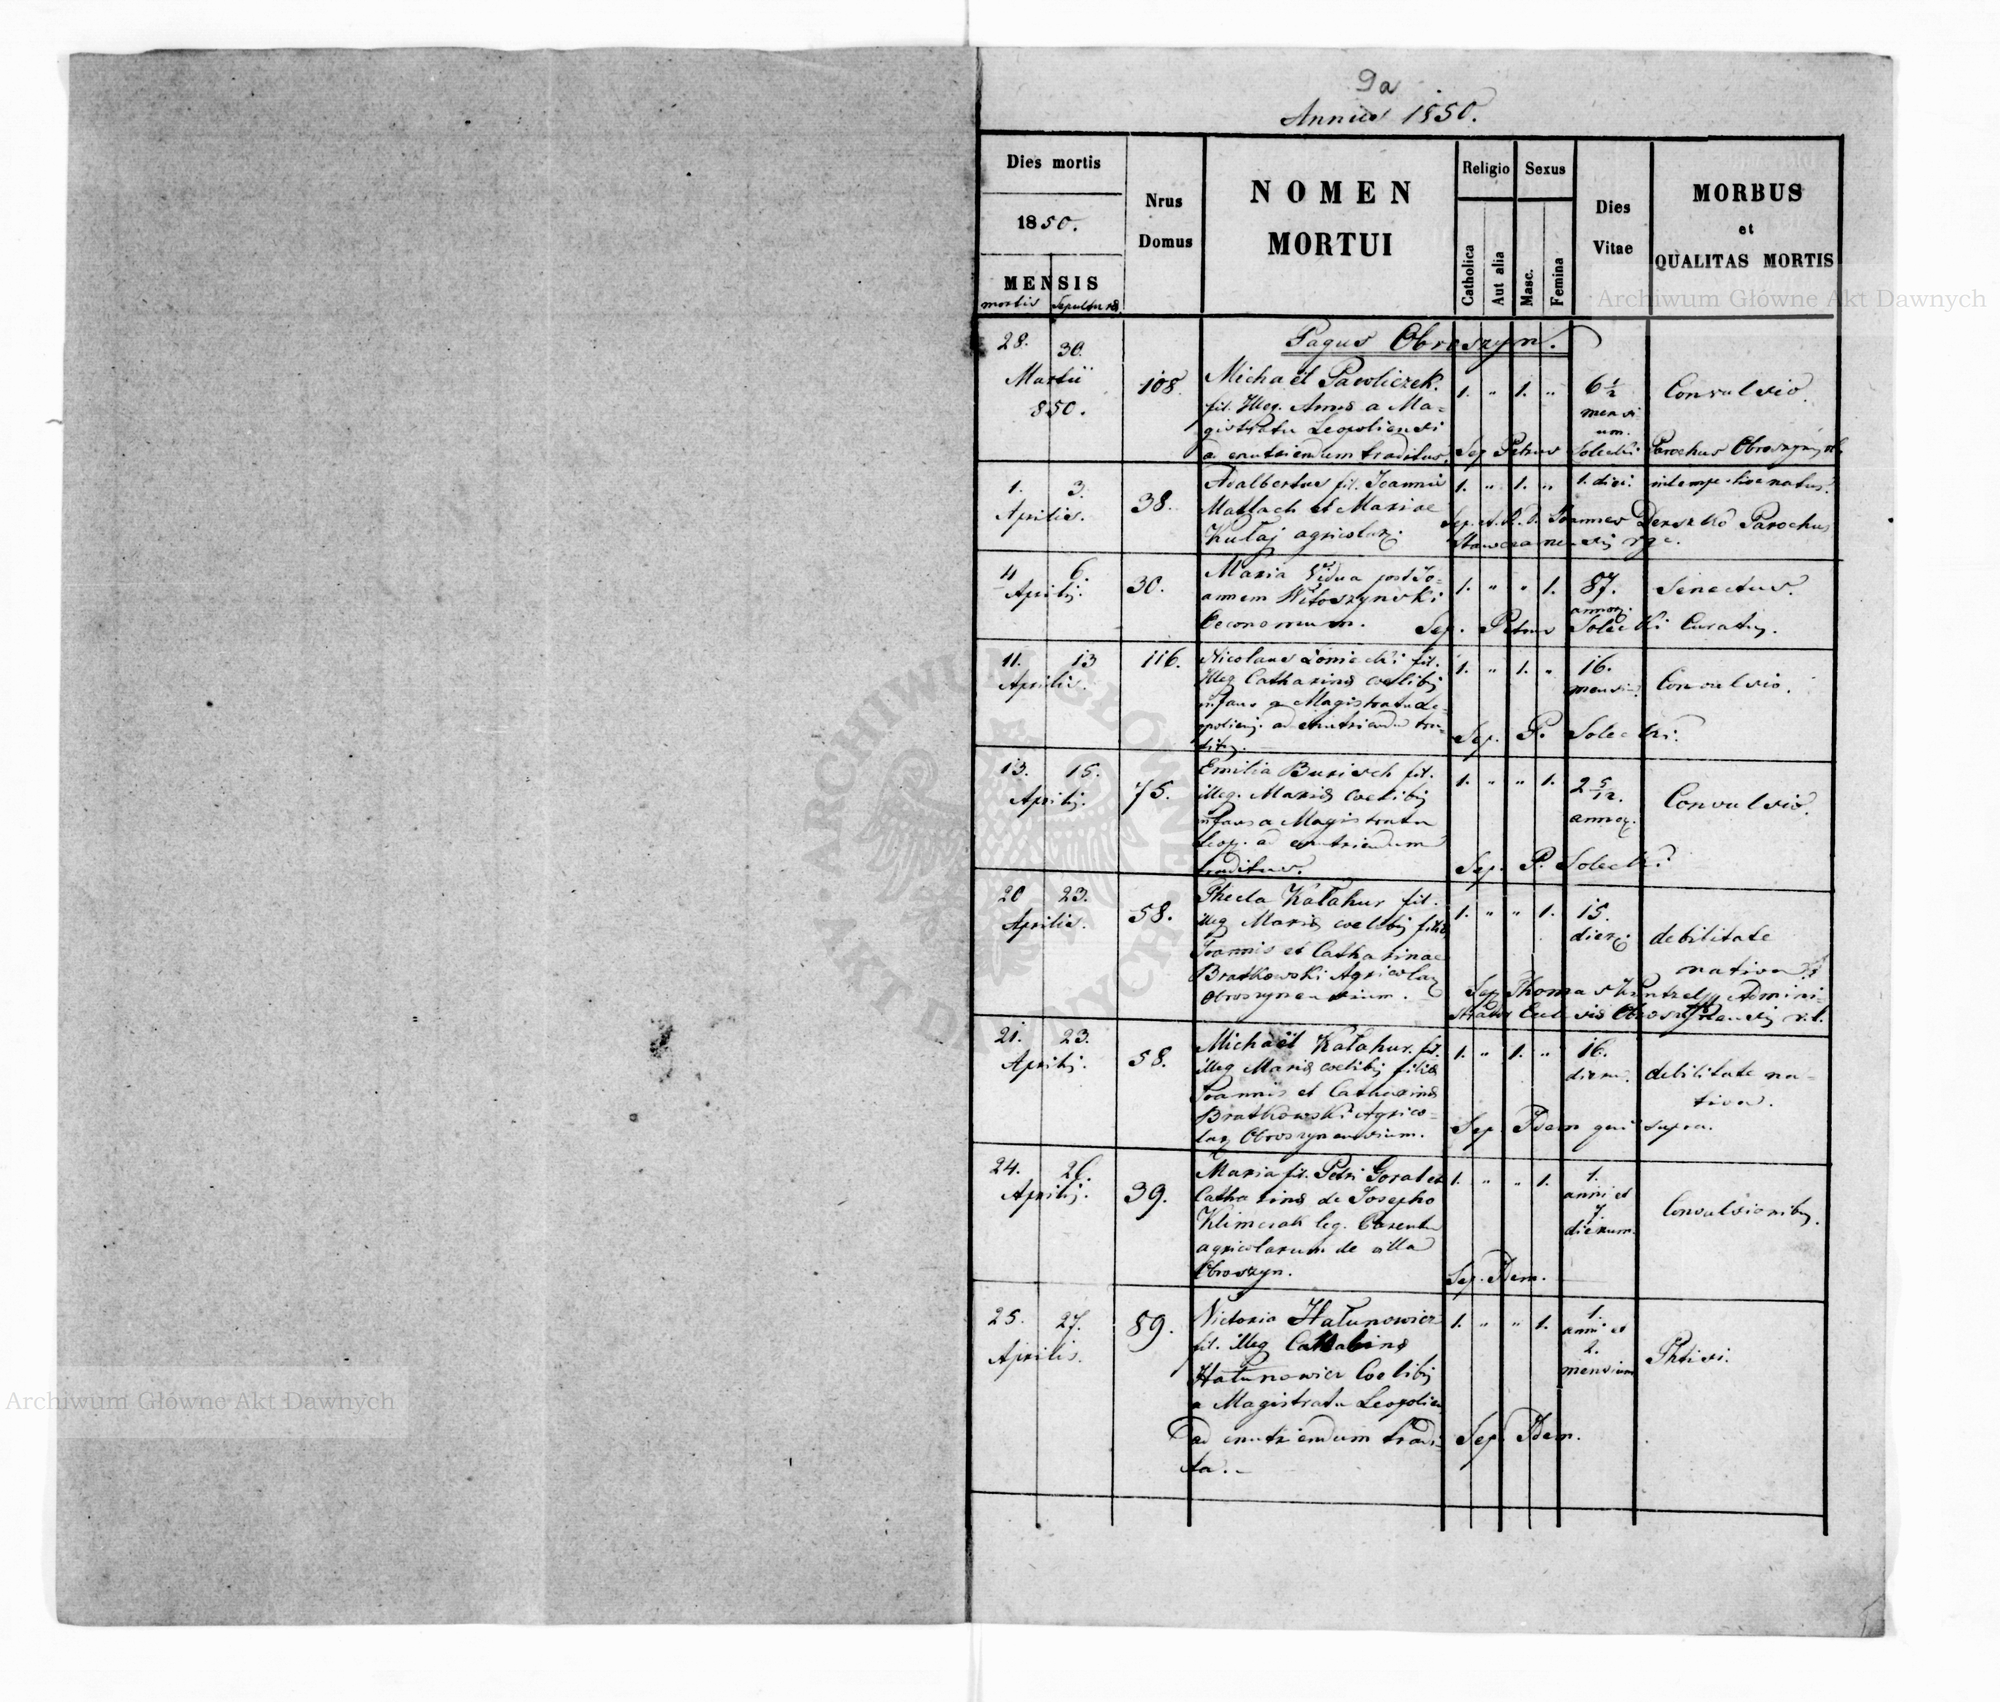 9a
Annus 1850.
Dies mortis
1850.
MENSIS
mortis Sepulturæ
Nrus
Domus
NOMEN
MORTUI
Religio
Catholica
Aut alia
Sexus
Masc.
Femina
Dies
Vitae
MORBUS
et
QUALITAS MORTIS
Pagus Obroszyn.
28. 30.
Martii
850.
108.
Michael Pawliczek.
fil. Illeg. Annæ a Ma=
gistratu Leopoliensi
a enutriendum traditus.
1. " 1. "
6 1/2
mensi
um.
Convulsio.
Sep. Petrus Solecki Parochus
1. 3.
Aprilis.
38.
Adalbertus fil. Joannis
Matlach et Mariae
Kułaj agricolar.
1. " 1. "
1. diei.
intempestive natus.
Sep. A. R. D. Joannes Parochus
4 6
Aprilis.
30.
Maria Vidua post Jo=
annem Witoszynski
Oeconomum.
1. " " 1.
87.
annor.
Senectus.
Sep. Petrus Solecki Curatus.
11. 13
Aprilis.
116.
Nicolaus fil.
Illeg Catharinæ coelibis
infans a Magistratu Le=
opoliens. ad enutriendu tra=
ditus.
1. " 1. "
16.
mensiu.
Convulsio.
Sep. P. Solecki.
13. 15.
Aprilis.
75.
Emilia Burisch fil.
illeg. Mariæ coelibis
infans a Magistratu
Leop. ad enutriendum
traditus.
1. " " 1.
2 5/12.
annor.
Convulsio.
Sep. P. Solecki.
20 23.
Aprilis.
58.
Thecla Kałahur fil.
illeg Mariæ coelibis filiæ
Joannis et Catharinae
Bratkowski Agricolar
Obroszynensium.
1. " " 1.
15.
dier.
debilitate
nativa.
Sep. Thomas Admini=
strator
21. 23.
Aprilis.
58.
Michaël Kałahur. fil.
illeg Mariæ coelibis filiæ
Joannis et Catharinæ
Bratkowski Agrico=
lar Obroszynensium.
1. " 1. "
16.
dieru.
debilitate na=
tiva.
Sep. Idem qui supra.
24. 26.
Aprilis.
39.
Maria fil. Petri Goral et
Catharinæ de Josepho
Klimczak leg. Parentu
agricolarum de villa
Obroszyn.
1. " " 1.
1.
anni et
7.
dierum.
Convulsionibus.
Sep. Idem.
25. 27.
Aprilis.
89.
Victoria Hałunowicz
fil. illeg Catharinæ
Hałunowicz Coelibis
a Magistratu Leopolien
ad enutriendum tradi=
ta.
1. " " 1.
1.
anni et
2.
mensium
Phtisi.
Sep. Idem.
Archiwum Główne Akt Dawnych
Archiwum Główne Akt Dawnych
ARCHIWUM GŁÓWNE AKT DAWNYCH